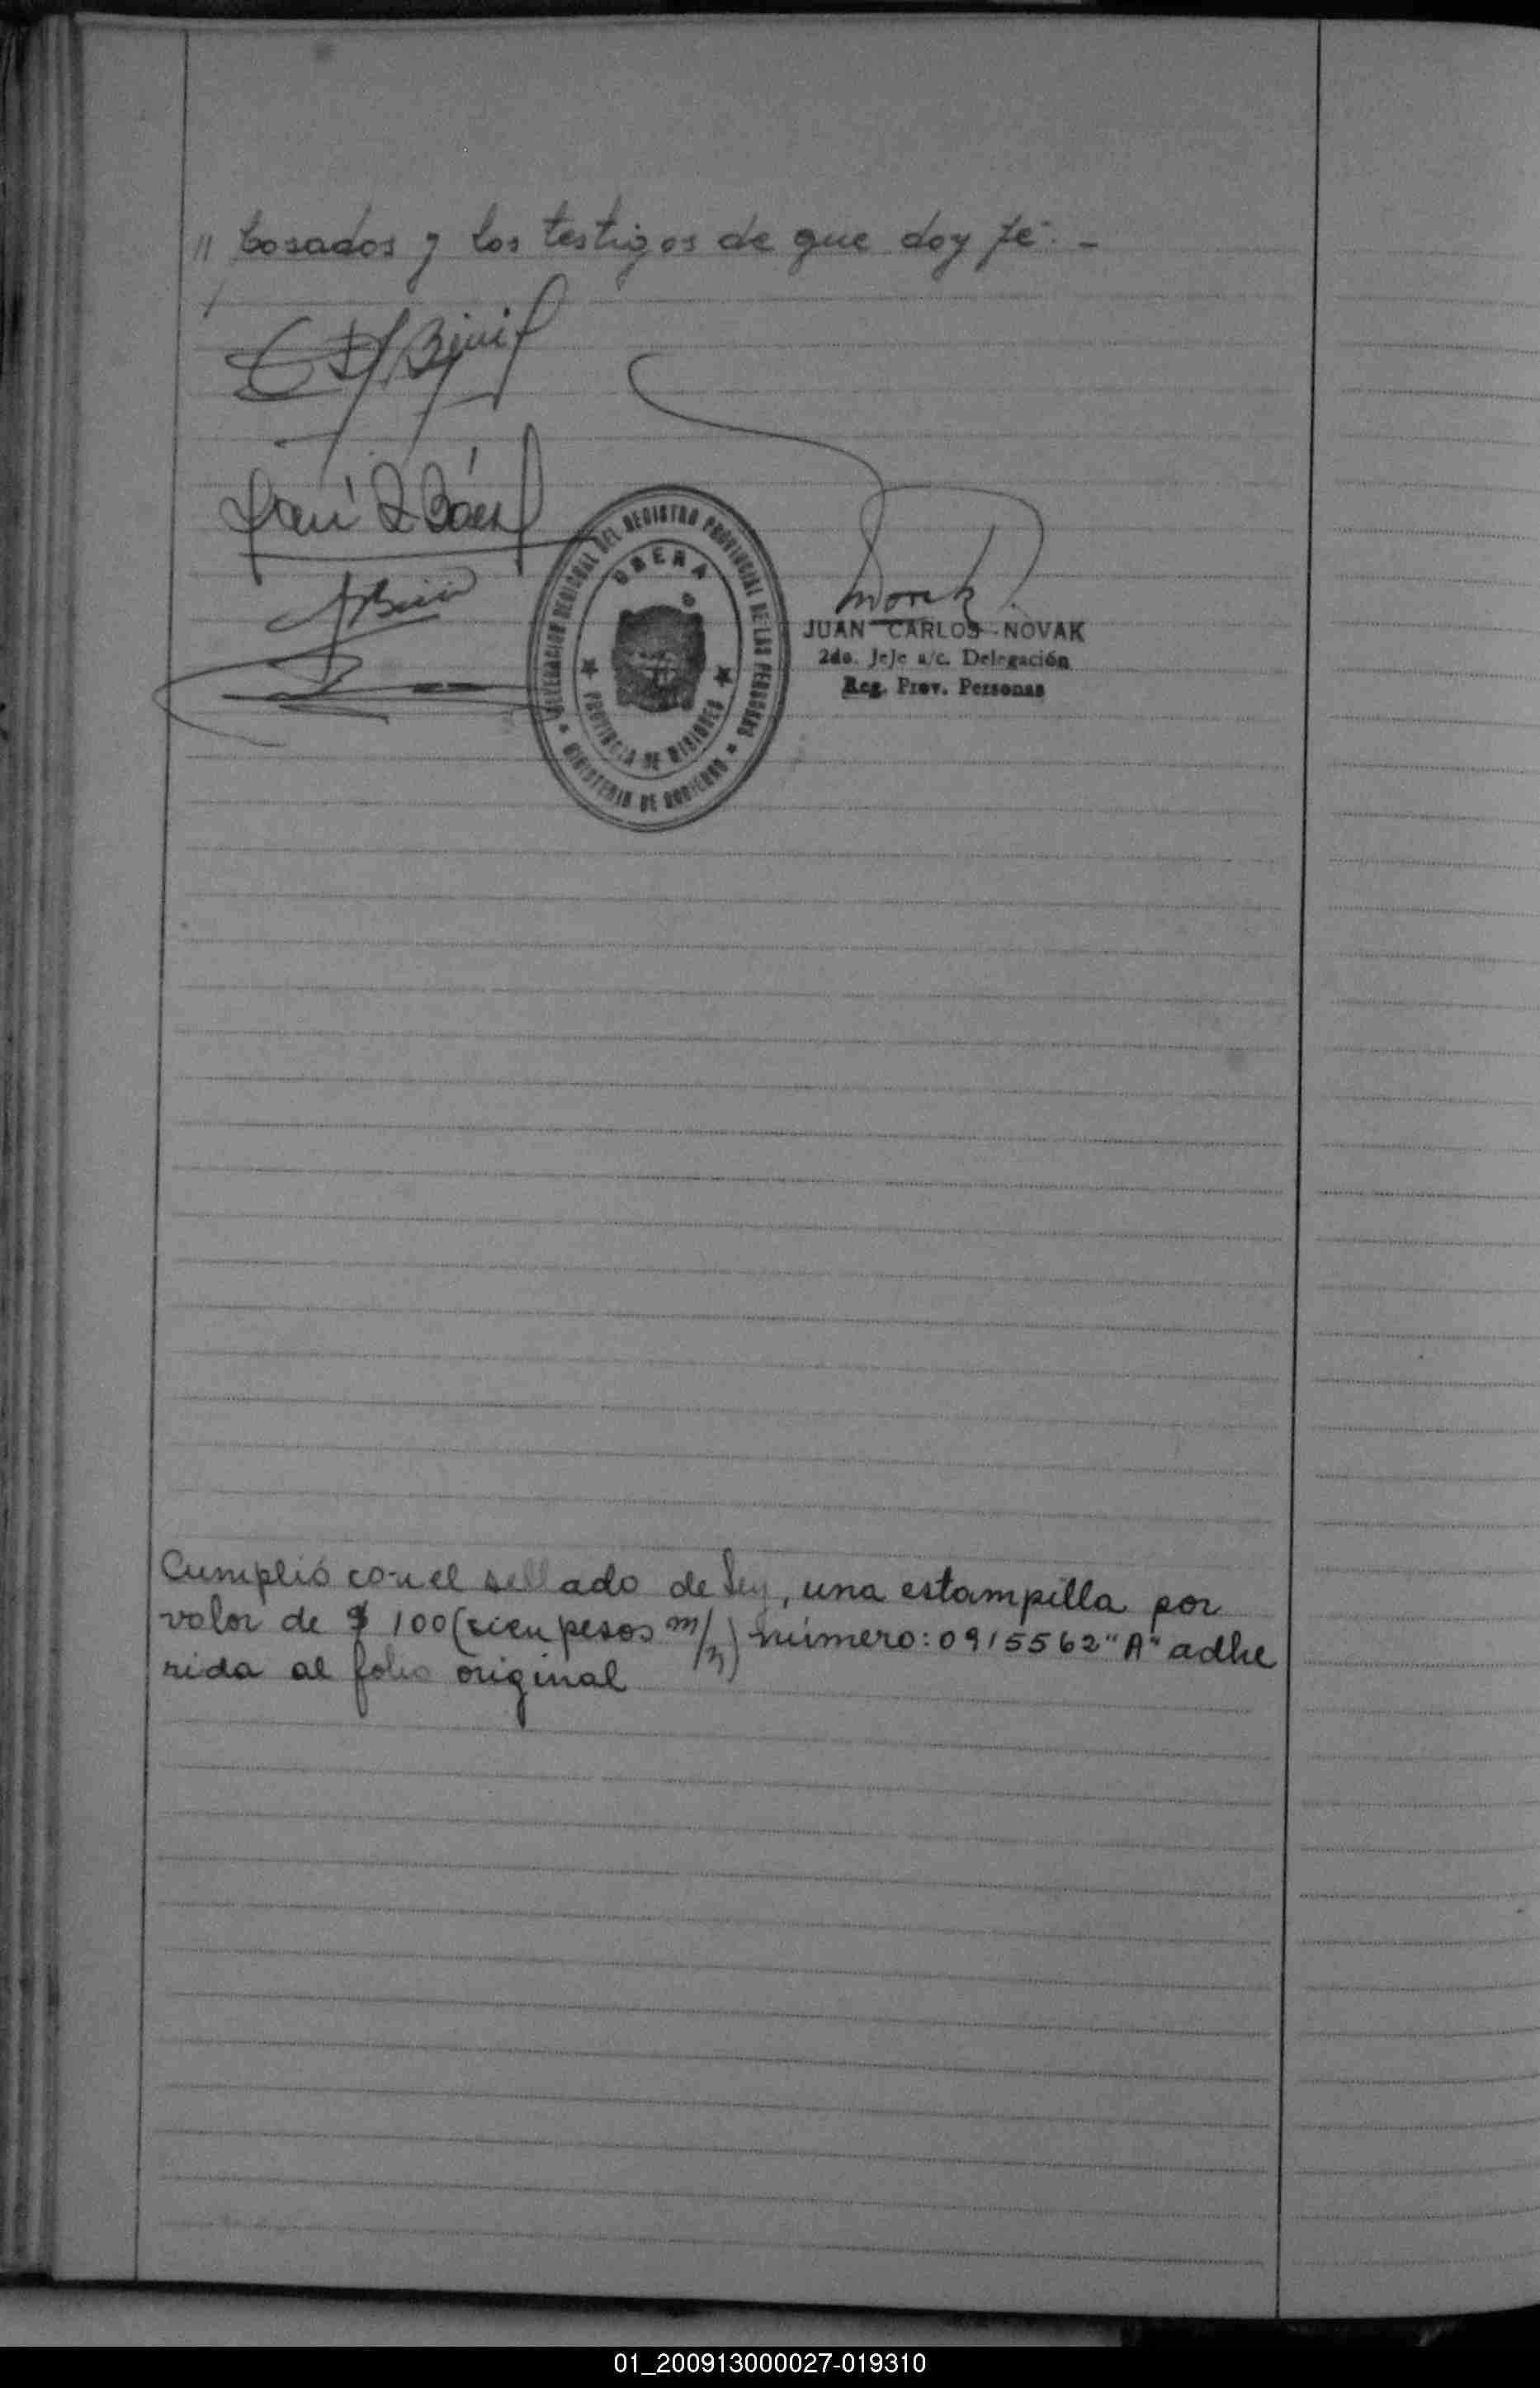 // tosados y los testigos de que doy fé. -
DELEGACION REGIONAL DEL REGISTRO PROVINCIAL DE LAS PERSONAS
OBERA
PROVINCIA DE MISIONES
MINISTERIO DE GOBIERNO
JUAN CARLOS NOVAK
2do. Jefe a/c. Delegación
Reg. Prov. Personas
Cumplió con el sellado de Ley, una estampilla por
valor de $ 100 (cien pesos m/n) número: 0915562 "A" adhe
rida al folio original
01_200913000027-019310